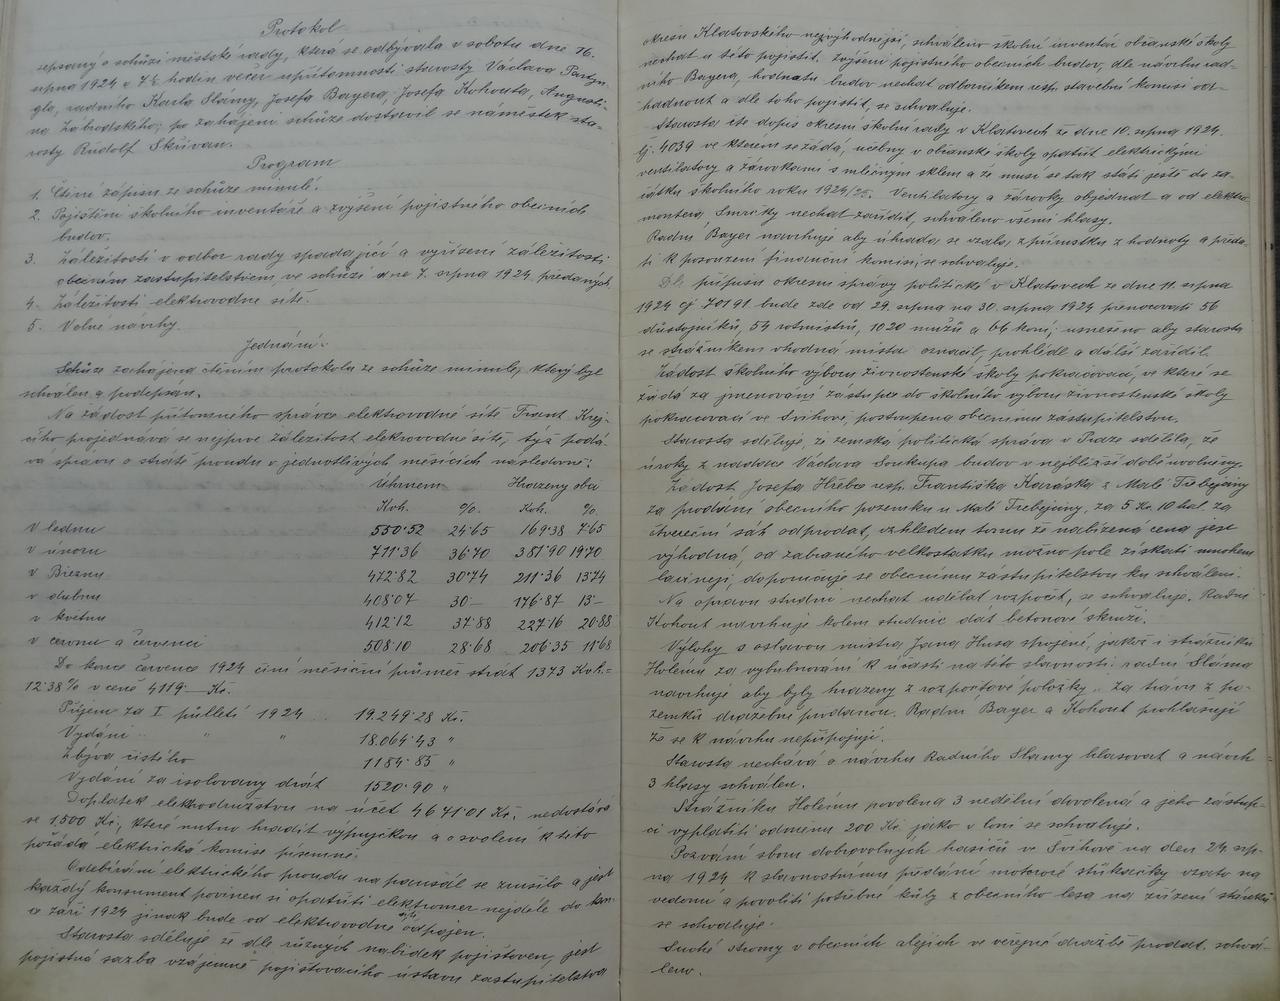 Protokol
sepsaný o schůzi městské rady, která se odbývala v sobotu dne 16.
srpna 1924 o 7½ hodin večer u přítomnosti starosty Václava
radního Karla Slámy, Josefa Bayera, Josefa Kohouta, Augusti-
na Zábrodského; po zahájení schůze dostavil se náměstek sta-
rosty Rudolf Skřivan.
Program
1. Čtení zápisu ze schůze minulé.
2. Pojištění školního inventáře a zvýšení pojistného obecních
budov.
3. Záležitosti v odbor rady spadající a vyřízení záležitosti
obecním zastupitelstvem, ve schůzi dne 7. srpna 1924 předaných.
4. Záležitosti elektrovodné sítě.
5. Volné návrhy.
Jednání:
Schůze zahájena čtením protokolu ze schůze minulé, který byl
schválen a podepsán.
Na žádost přítomného správce elektrovodné sítě Frant. Krej-
čího projednává se nejprve záležitost elekrovodné sítě, týž podá-
vá zprávu o ztrátě proudu v jednotlivých měsících následovně:
Úhrnem Hrazený obcí
Kwh. %. Kwh. %.
v lednu 550·52 24·65 169·38 7·65
v únoru 711·36 36·70 381·90 19·70
v Březnu 472·82 30·74 211·36 13·74
v dubnu 408·07 30— 176·87 13—
v květnu 412·12 37·88 227·16 20·88
v červnu a červenci 508·10 28·68 206·35 11·68
Do konce července 1924 činí měsíční průměr ztrát 1373 Kwh.=
12·38% v ceně 4119·— Kč.
Příjem za I. půlletí 1924 19.249·28 Kč.
Vydání " " 18.064·43 "
Zbývá čistého 1184·85 "
Vydání za isolovaný drát 1520·90 "
Doplatek elektrodružstvu na účet 4671·01 Kč. nedostává
se 1.500 Kč, které nutno hradit výpujčkou a o svolení k této
požádá elektrická komise písemně.
Odebírání elektrického proudu na paušál se zrušilo a jest
každý konsument povinen si opatřiti elektroměr nejdéle do kon-
ce září 1924 jinak bude od elektrovodné sítě odpojen.
Starosta sděluje že dle různých nabídek pojišťoven, jest
pojistná sazba vzájemně pojišťovacího ústavu zastupitelstva
okresu Klatovského nejvýhodnější, schváleno školní inventář občanské školy
nechat u této pojistit. Zvýšení pojistného obecních budov, dle návrhu rad-
ního Bayera, hodnotu budov nechat odborníkem resp. stavební komisí od-
hadnout a dle toho pojistit, se schvaluje.
Starosta čte dopis okresní školní rady v Klatovech že dne 10. srpna 1924.
čj. 4039 ve kterém se žádá, učebny v občanské školy opatřit elektrickými
ventilátory a žárovkami s mléčným sklem a že musí se tak státi ještě do za-
čátku školního roku 1924/25. Ventilátory a žárovky objednat a od elektro
montera Smrčky nechat zařídit, schváleno všemi hlasy.
Radní Bayer navrhuje aby úhrada se vzala z přirůstku z hodnoty a předa-
ti k posouzení finanční komisi, se schvaluje.
Dle přípisu okresní správy politické v Klatovech ze dne 11. srpna
1924 čj 70191 bude zde od 29. srpna na 30. srpna 1924 přenocovati 56
důstojníků, 54 rotmistrů, 1020 mužů a 66 koní; usneseno aby starosta
se strážníkem vhodná místa označil, prohlédl a další zařídil.
Žádost školního výboru živnostenské školy pokračovací, ve které se
žádá za jmenování zástupce do školního výboru živnostenské školy
pokračovací ve Švihově, postoupena obecnímu zastupitelstvu.
Starosta sděluje, že zemská politická správa v Praze sdělila, že
úroky z nadace Václava Soukupa budou v nejbližší době uvolněny.
Žádost Josefa Hřeba resp. Františka Karáska z Malé Třebejčiny
za prodání obecního pozemku u Malé Třebejčiny, za 5 Kč 10 hal. za
čtvereční sáh odprodat, vzhledem tomu že nabízená cena jest
výhodná, od zabraného velkostatku možno pole získati mnohem
laciněji, doporučuje se obecnímu zastupitelstvu ku schválení.
Na opravu studní nechat udělat rozpočet, se schvaluje. Radní
Kohout navrhuje kolem studnic dát betonové skruži.
Výlohy s oslavou mistra Jana Husa spojené, jakož i strážníku
Holému za vybubnování k účasti na této slavnosti radní Sláma
navrhuje aby byly hrazeny z rozpočtové položky „Za trávu z po-
zemků dražebně prodanou. Radní Bayer a Kohout prohlašují
že se k návrhu nepřipojují.
Starosta nechává o návrhu Radního Slámy hlasovat a návrh
3 hlasy schválen.
Strážníku Holému povolena 3 nedělní dovolená a jeho zástup-
ci vyplatiti odměnu 200 Kč jako v loni se schvaluje.
Pozvání sboru dobrovolných hasičů ve Švihově na den 24 srp-
na 1924 k slavnostnímu předání motorové stříkačky vzato na
vědomí a povoliti potřebné kůly z obecního lesa na zřízení
se schvaluje.
Suché stromy v obecních alejích ve veřejné dražbě prodat. schvá-
leno.